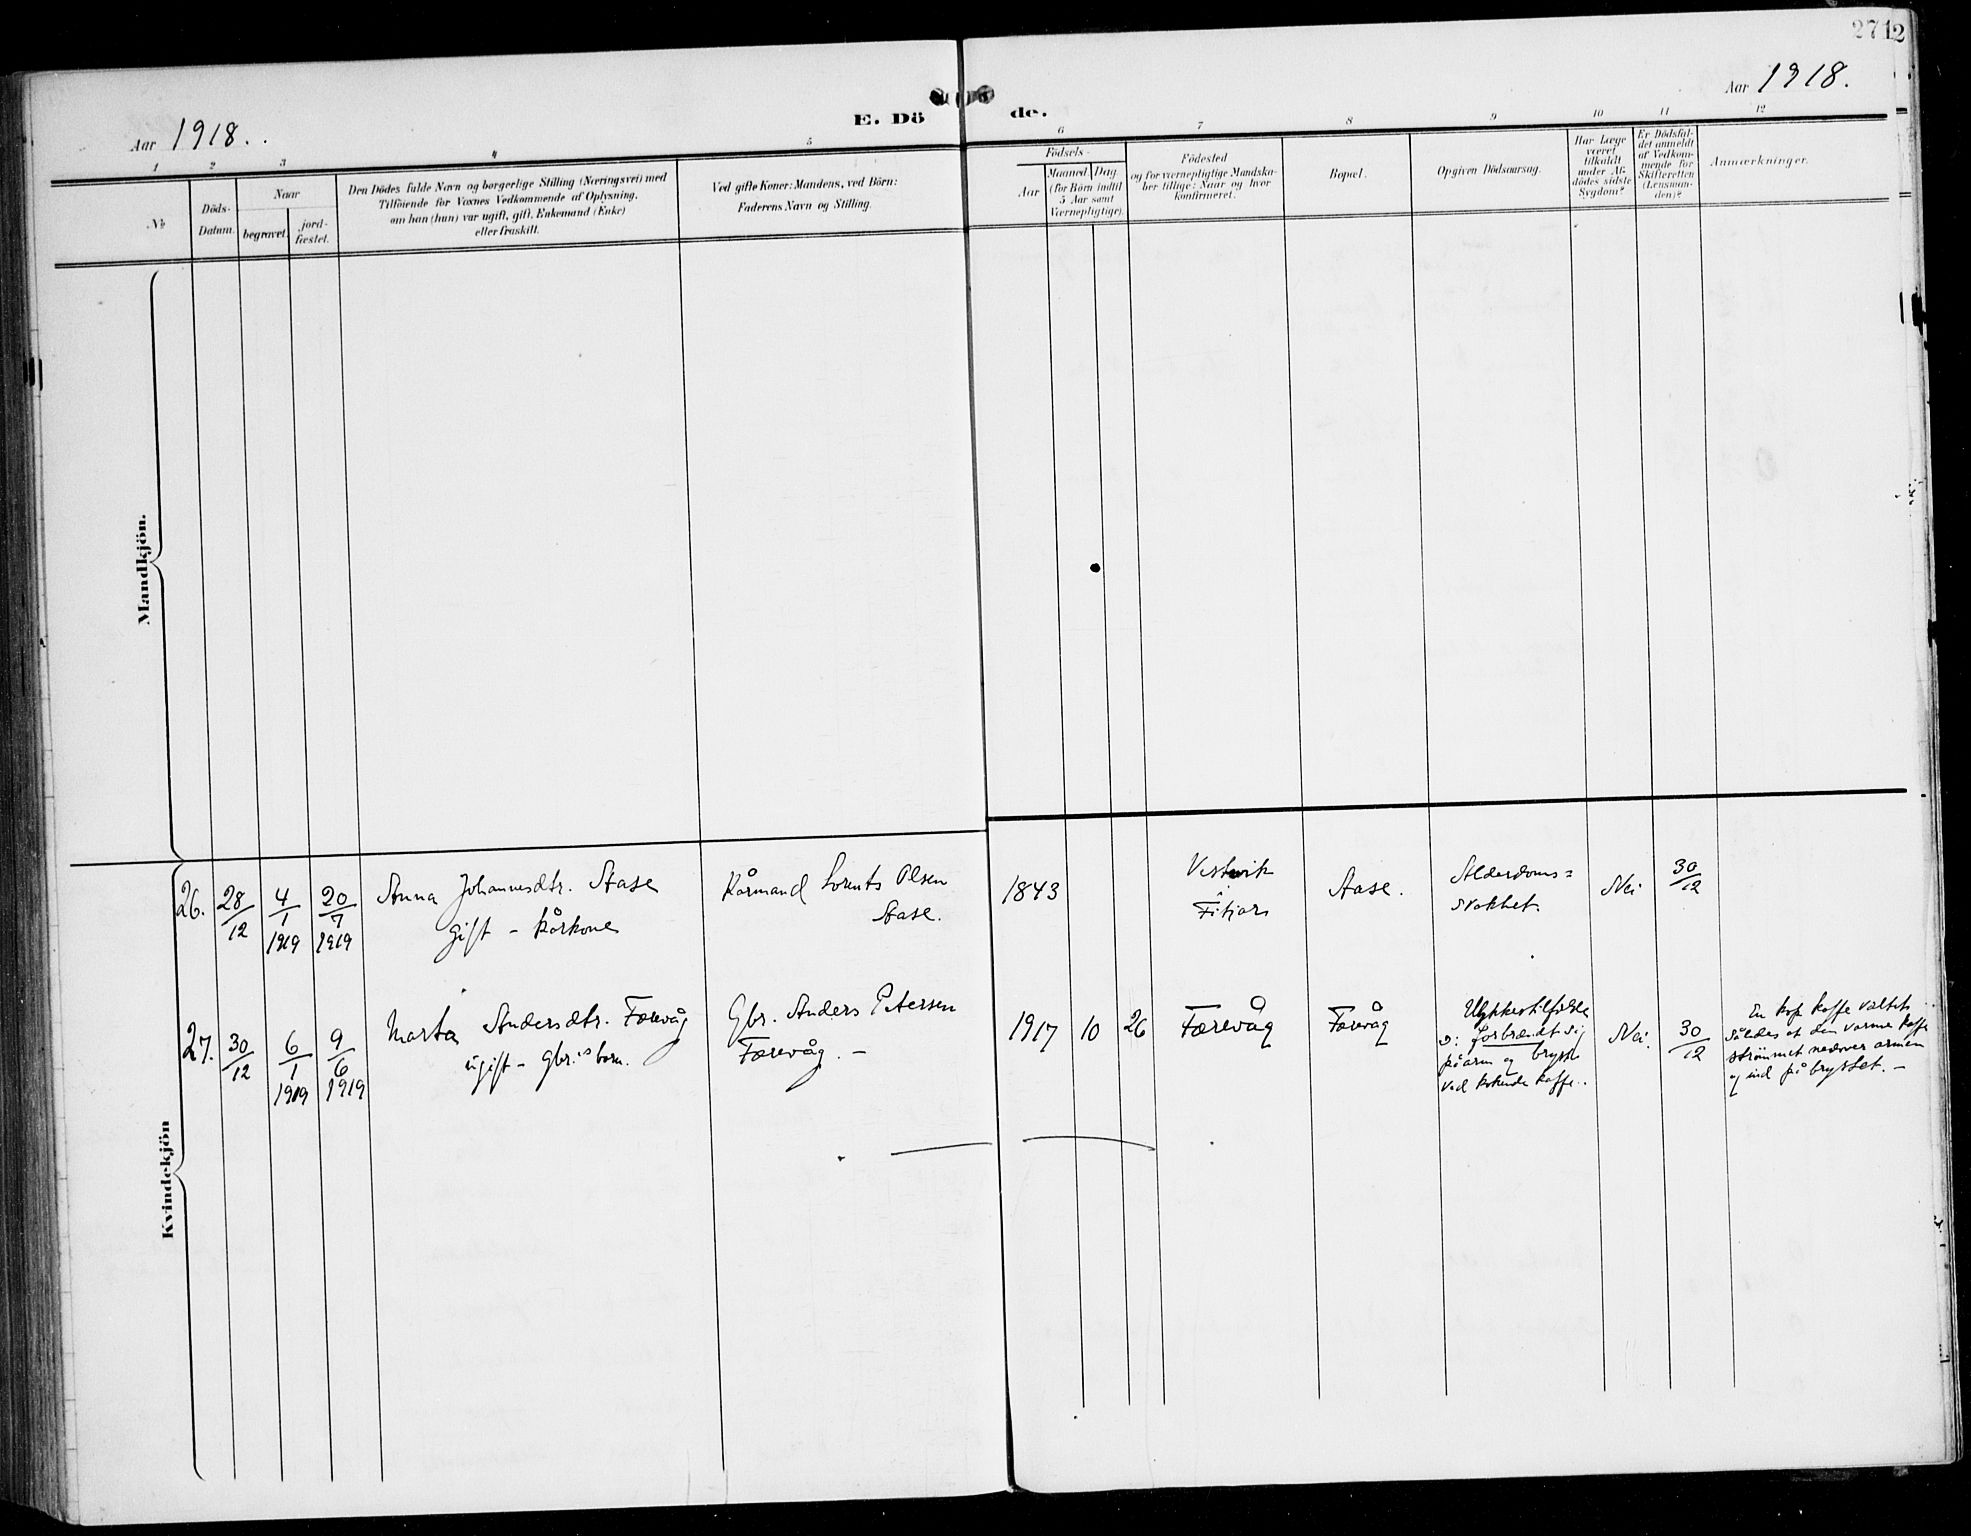 2712
Aar 1918.
Aar 1918.
E. Döde.
1 2 3 4 5 6 7 8 9 10 11 12
No.
Döds-
Datum.
Naar
begravet.
jord-
fæstet.
Den Dödes fulde Navn og borgerlige Stilling (Næringsvei) med
Tilföiende for Voxnes Vedkommende af Oplysning,
om han (hun) var ugift, gift, Enkemand (Enke)
eller fraskilt.
Ved gifte Koner: Mandens, ved Börn:
Faderens Navn og Stilling.
Födsels-
Aar
Maaned Dag
(for Börn indtil
5 Aar samt
Værnepligtige).
Födested
og for værnepligtige Mandska-
ber tillige: Naar og hvor
konfirmeret.
Bopæl.
Opgiven Dödsaarsag.
Har Læge
været
tilkaldt
under Af-
dödes sidste
Sygdom?
Er Dödsfal-
det anmeldt
af Vedkom-
mende for
Skifteretten
(Lensman-
den)?
Anmærkninger.
Mandkjön.
Kvindekjön
26.
28/12
4/1
1919
20/7
1919
Anna Johannesdtr. Aase
gift - kårkone
Kårmand Lorents Olsen
Aase.
1843
Vestvik
Fitjar
Aase.
Alderdoms=
svakhet.
Nei
30/12
27.
30/12
6/1
1919
9/6
1919
Marta Andersdtr. Færevåg
ugift - Gbr.s barn.
Gbr. Anders Petersen
Færevåg. -
1917 10 26
Færevåg
Færevåg
Ulykkestilfælde
ɔ: forbrændt sig
på arm og bryst
ved kokende kaffe.
Nei.
30/12
En kop kaffe væltet
således at den varme kaffe
strömmet nedover armen
og ind på brystet. -